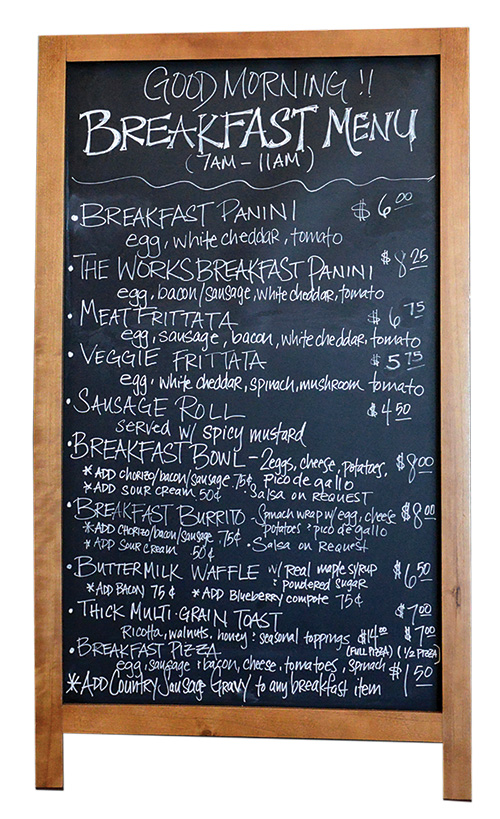 GOOD MORNING !!
BREAKFAST MENU
(7AM - 11AM)
• BREAKFAST PANINI $6.00
egg, white cheddar, tomato
• THE WORKS BREAKFAST PANINI $8.25
egg, bacon/sausage, white cheddar, tomato
• MEAT FRITTATA $6.75
egg, sausage, bacon, white cheddar, tomato
• VEGGIE FRITTATA $5.75
egg, white cheddar, spinach, mushroom tomato
• SAUSAGE ROLL $4.50
served w/ spicy mustard
• BREAKFAST BOWL - 2 eggs, cheese, potatoes, $8.00
*ADD chorizo/bacon/sausage 75¢ pico de gallo
*ADD SOUR CREAM 50¢ • Salsa on request
• BREAKFAST BURRITO - Spinach wrap w/ egg, cheese $8.00
*ADD chorizo/bacon/sausage 75¢ potatoes & pico de gallo
*ADD Sour cream 50¢ • Salsa on Request
• BUTTERMILK WAFFLE w/ Real maple syrup $6.50
& powdered sugar
*ADD BACON 75¢ *ADD Blueberry compote 75¢
• THICK MULTI-GRAIN TOAST $7.00
Ricotta, walnuts, honey & seasonal toppings $14.00 $7.00
• BREAKFAST PIZZA (FULL PIZZA) (1/2 PIZZA)
egg, sausage & bacon, cheese, tomatoes, spinach
*ADD Country Sausage Gravy to any breakfast item $1.50